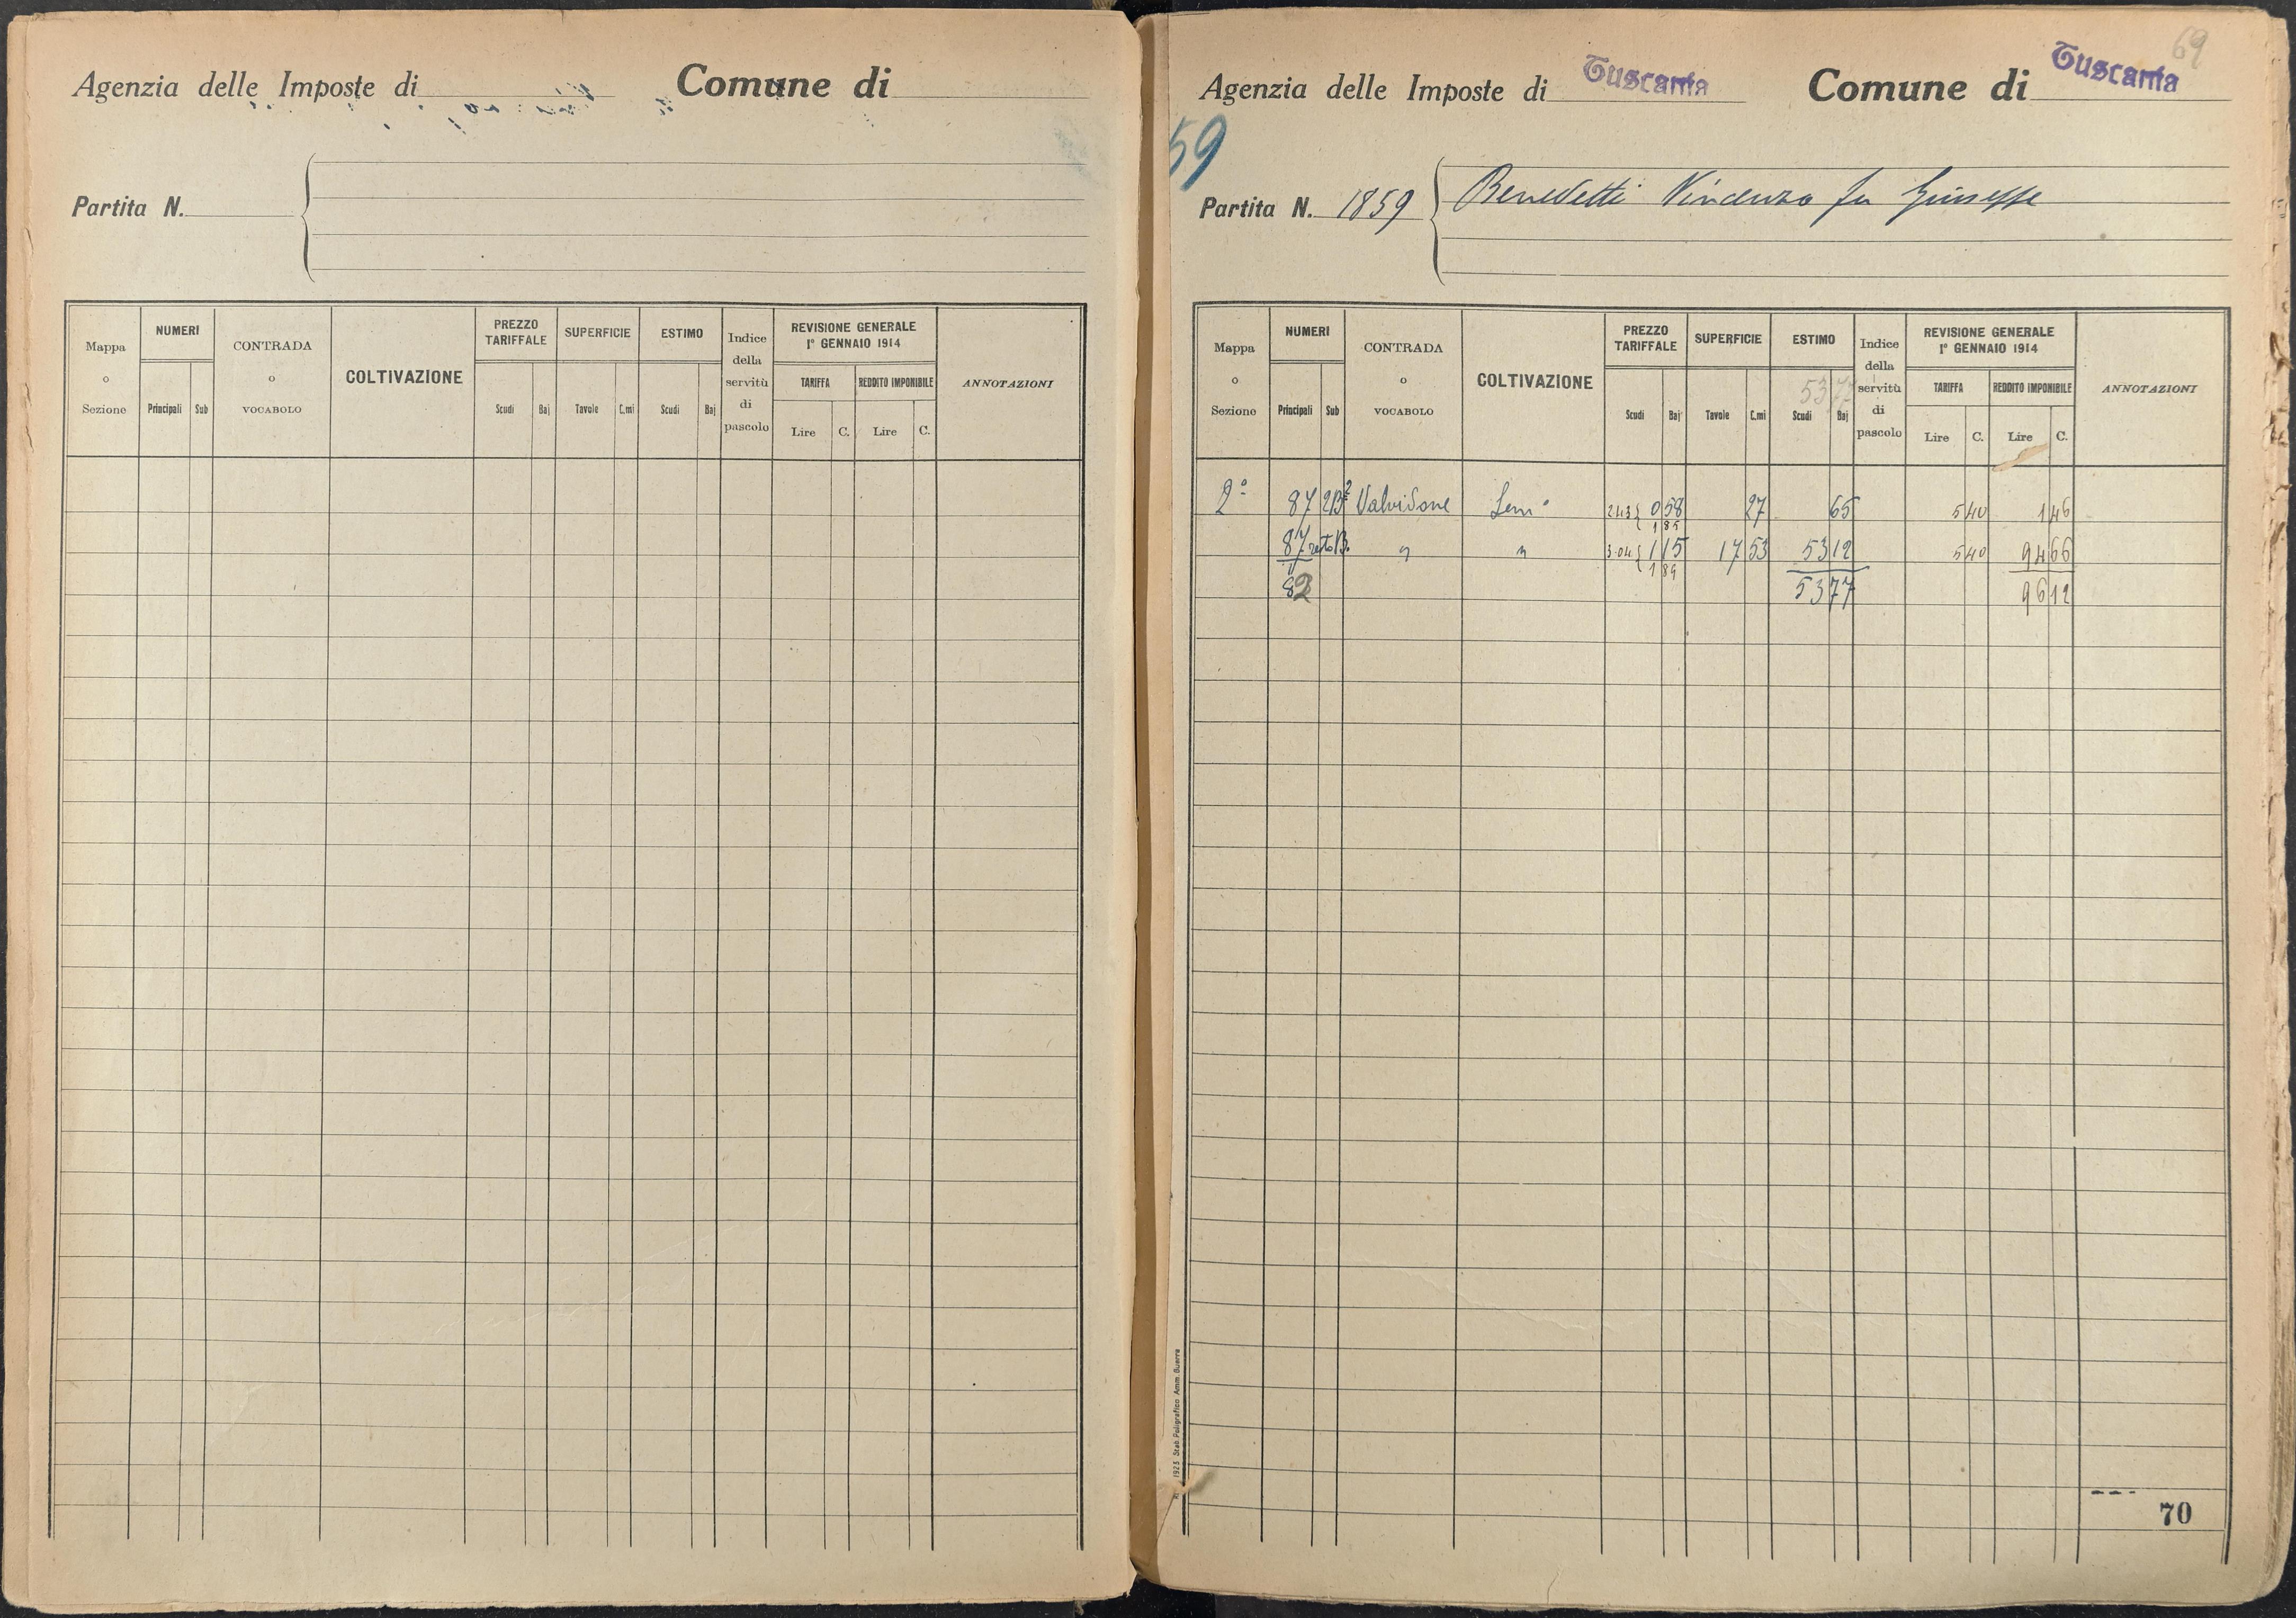 Agenzia delle Imposte di
Comune di
Partita N.
Mappa o Sezione
NUMERI
Principali Sub
CONTRADA o VOCABOLO
COLTIVAZIONE
PREZZO TARIFFALE
Scudi Baj
SUPERFICIE
Tavole C.mi
ESTIMO
Scudi Baj
Indice della servitù di pascolo
REVISIONE GENERALE
1° GENNAIO 1914
TARIFFA REDDITO IMPONIBILE
Lire C. Lire C.
ANNOTAZIONI
69
Agenzia delle Imposte di Tuscania Comune di Tuscania
59
Partita N. 1859 Benedetti Vincenzo fu Giuseppe
Mappa o Sezione
NUMERI
Principali Sub
CONTRADA o VOCABOLO
COLTIVAZIONE
PREZZO TARIFFALE
Scudi Baj
SUPERFICIE
Tavole C.mi
ESTIMO
5377
Scudi Baj
Indice della servitù di pascolo
REVISIONE GENERALE
1° GENNAIO 1914
TARIFFA REDDITO IMPONIBILE
Lire C. Lire C.
ANNOTAZIONI
2° 87 2B² Valvidone Sem° 2.43 0 58 27 65 5 40 1 46
1 85
87 resto B. " " 3.04 1 15 17 53 53 12 5 40 94 66
1 89
82 53 77 96 12
1923 Stab. Poligrafico Amm. Guerra
70